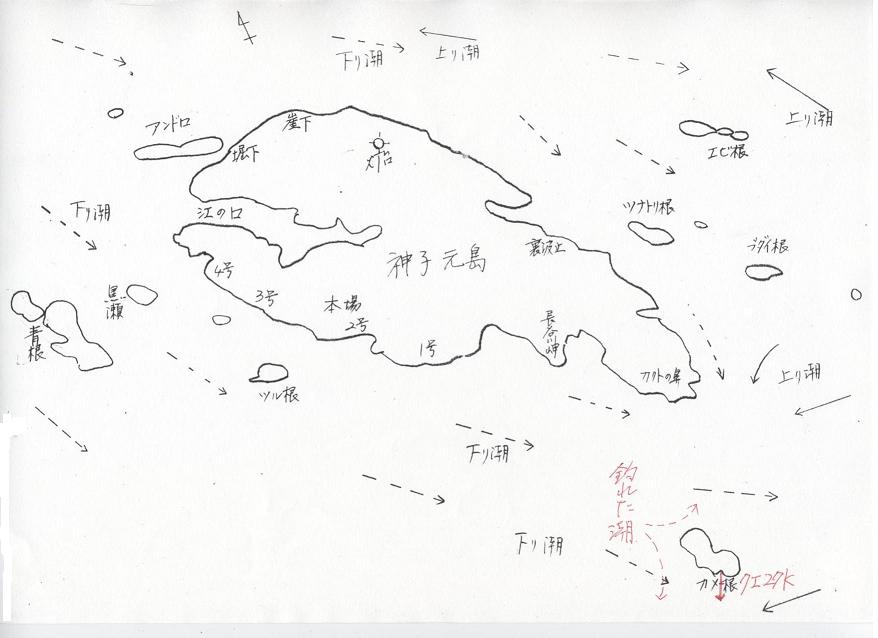 下り潮
上り潮
上り潮
アンドロ
崖下
堀下
灯台
エビ根
下り潮
江の口
ツナトリ根
神子元島
裏波止
4号
3号
黒瀬
本場
2号
1号
青根
長谷川岬
カドの鼻
上り潮
ツル根
下り潮
釣れた潮
下り潮
カメ根
クエ27K